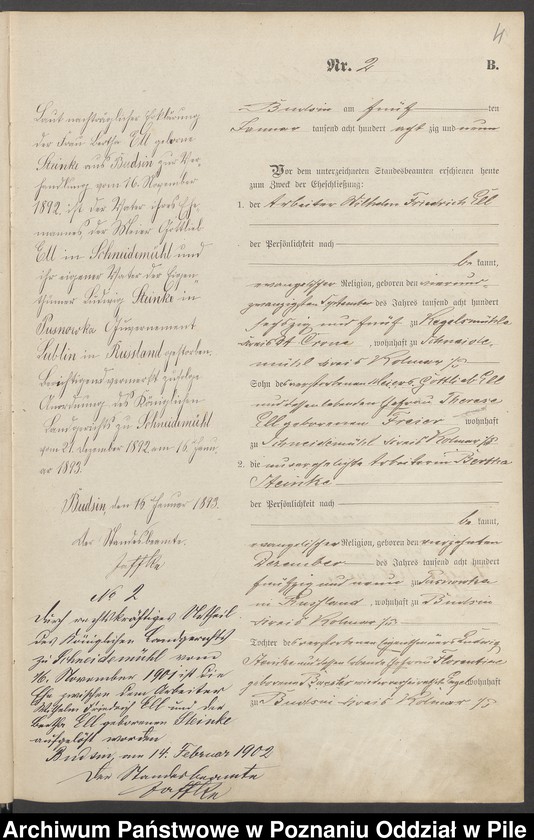 4
Nr. 2 B.
Budsin am fünf ten
Januar tausend acht hundert acht zig und neun
Vor dem unterzeichneten Standesbeamten erschienen heute
zum Zweck der Eheschließung:
1. der Arbeiter Wilhelm Friedrich Ell
der Persönlichkeit nach
be kannt,
evangelischer Religion, geboren den vierund
zwanzigsten September des Jahres tausend acht hundert
sechszig und fünf zu Kegelsmühle
Kreis Dt Crone, wohnhaft zu Schneide
mühl Kreis Kolmar i/P
Sohn des verstorbenen Meiers Gottlieb Ell
und dessen lebenden Ehefrau Therese
Ell geborenen Freier wohnhaft
zu Schneidemühl Kreis Kolmar i/P
2. die unverehelichte Arbeiterin Bertha
Steinke
der Persönlichkeit nach
be kannt,
evangelischer Religion, geboren den vierzehnten
Dezember des Jahres tausend acht hundert
fünfzig und neun zu
in Russland, wohnhaft zu Budsin
Kreis Kolmar i/P
Tochter des verstorbenen Eigenthümers Ludwig
Steinke und dessen Ehefrau Florentine
geborene wohnhaft
zu Budsin Kreis Kolmar i/P
Laut nachträglicher Erklärung
der Frau Bertha Ell geborene
Steinke aus Budsin zur Ver
handlung vom 16. November
1892, ist der Vater ihres Ehe
mannes der Meier Gottlieb
Ell in Schneidemühl und
ihr eigener Vater der Eigen
thümer Ludwig Steinke in
Pusnowka Gouvernement
Lublin in Russland gestorben.
Berichtigend vermerkt zufolge
Anordnung des Königlichen
Landgerichts zu Schneidemühl
vom 21. Dezember 1892 am 16. Janu
ar 1893.
Budsin, den 16 Januar 1893.
Der Standesbeamte.
Jaffke
No 2
Durch rechtskräftiges Urtheil
des Königlichen Landgerichts
zu Schneidemühl vom
16. November 1901 ist die
Ehe zwischen dem Arbeiter
Wilhelm Friedrich Ell und der
Bertha Ell geborenen Steinke
aufgelöst worden
Budsin, am 14. Februar 1902
Der Standesbeamte
Jaffke
Archiwum Państwowe w Poznaniu Oddział w Pile